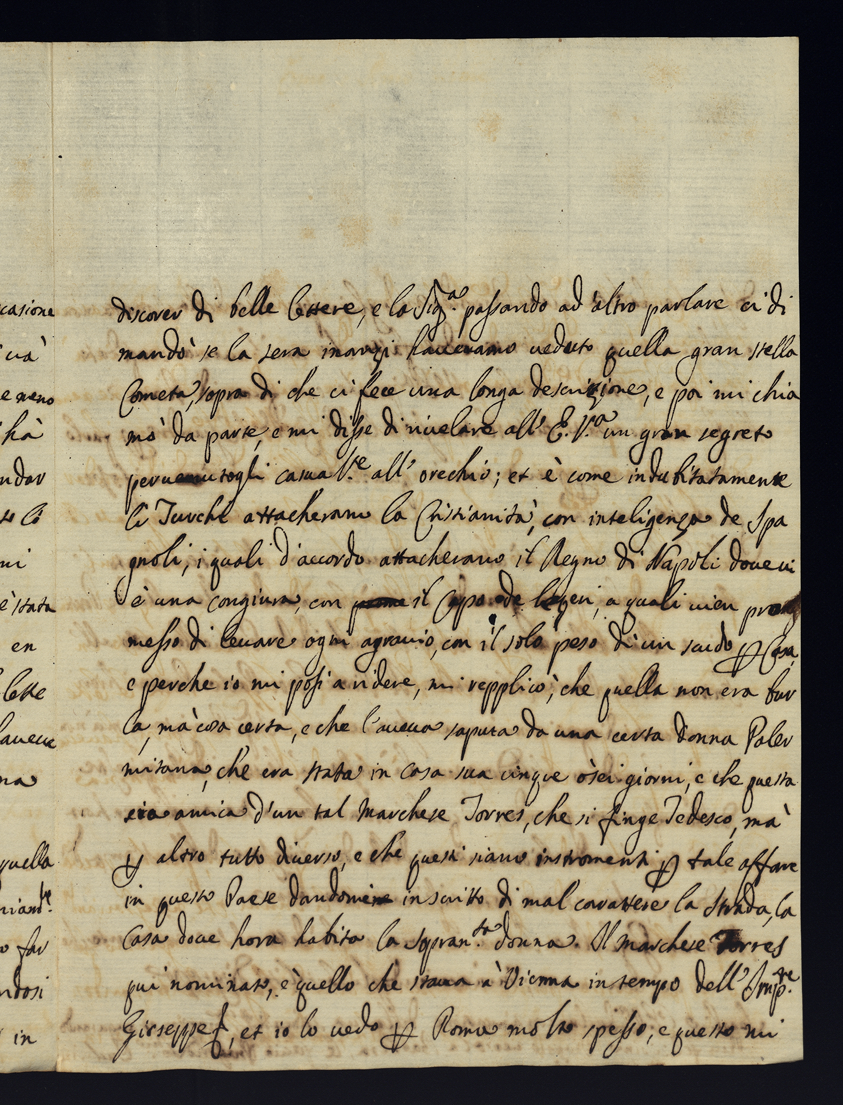 discorer di belle lettere, e la Sig.ª passando ad'altro parlare ci di
mandò se la sera inanzi haveramo veduto quella gran stella
Cometa, sopra di che ci fece una longa descrizione, e poi mi chia
mò da parte, e mi disse di rivelare all' E. V.ª un gran segreto
all' orechio; et è come indubitatamente
li Turchi attacherano la Cristianità, con inteligenza de Spa
gnoli, i quali d'accordo attacherano il Regno di Napoli dove vi
è una congiura, con il Capo de, a quali vien pro
messo di levare ogni agravio, con il solo peso di un scudo ꝑ Casa,
e perche io mi posi a ridere, mi repplicò, che quella non era bur
la, mà cosa certa, e che l'aveva saputa da una certa donna Paler
mitana, ch'era stata in casa sua cinque ò sei giorni, e che questa
era amica d'un tal Marchese Torres, che si finge Tedesco, mà
ꝑ altro tutto diverso, e che questi siano instromenti ꝑ tale affare
in questo Paese dandomi in scritto di mal carattere la strada, la
Casa dove hora habita la sopran.ta donna. Il Marchese Torres
qui nominato, è quello che stava à Vienna in tempo dell' Imp.re
Giuseppe, et io lo vedo ꝑ Roma molto spesso, e questo mi
casione
và
e meno
hà
ndar
mi
è stata
en
lette
na
quella
far
ndosi
in